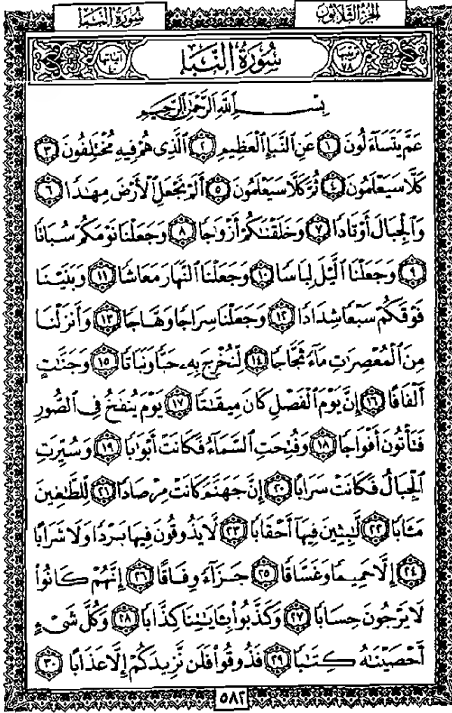 سُورَةُ النَّبَإِ
الجُزءُ الثَّلَاثُونَ
ترتيبها ٧٨
سُورَةُ النَّبَإِ
آياتها ٤٠
بِسْمِ اللَّهِ الرَّحْمَٰنِ الرَّحِيمِ
عَمَّ يَتَسَآءَلُونَ ١ عَنِ النَّبَإِ الْعَظِيمِ ٢ الَّذِى هُمْ فِيهِ مُخْتَلِفُونَ ٣
كَلَّا سَيَعْلَمُونَ ٤ ثُمَّ كَلَّا سَيَعْلَمُونَ ٥ أَلَمْ نَجْعَلِ الْأَرْضَ مِهَٰدًا ٦
وَالْجِبَالَ أَوْتَادًا ٧ وَخَلَقْنَٰكُمْ أَزْوَٰجًا ٨ وَجَعَلْنَا نَوْمَكُمْ سُبَاتًا
٩ وَجَعَلْنَا الَّيْلَ لِبَاسًا ١٠ وَجَعَلْنَا النَّهَارَ مَعَاشًا ١١ وَبَنَيْنَا
فَوْقَكُمْ سَبْعًا شِدَادًا ١٢ وَجَعَلْنَا سِرَاجًا وَهَّاجًا ١٣ وَأَنزَلْنَا
مِنَ الْمُعْصِرَٰتِ مَآءً ثَجَّاجًا ١٤ لِّنُخْرِجَ بِهِۦ حَبًّا وَنَبَاتًا ١٥ وَجَنَّٰتٍ
أَلْفَافًا ١٦ إِنَّ يَوْمَ الْفَصْلِ كَانَ مِيقَٰتًا ١٧ يَوْمَ يُنفَخُ فِى الصُّورِ
فَتَأْتُونَ أَفْوَاجًا ١٨ وَفُتِحَتِ السَّمَآءُ فَكَانَتْ أَبْوَٰبًا ١٩ وَسُيِّرَتِ
الْجِبَالُ فَكَانَتْ سَرَابًا ٢٠ إِنَّ جَهَنَّمَ كَانَتْ مِرْصَادًا ٢١ لِّلطَّٰغِينَ
مَـَٔابًا ٢٢ لَّٰبِثِينَ فِيهَآ أَحْقَابًا ٢٣ لَّا يَذُوقُونَ فِيهَا بَرْدًا وَلَا شَرَابًا
٢٤ إِلَّا حَمِيمًا وَغَسَّاقًا ٢٥ جَزَآءً وِفَاقًا ٢٦ إِنَّهُمْ كَانُوا۟
لَا يَرْجُونَ حِسَابًا ٢٧ وَكَذَّبُوا۟ بِـَٔايَٰتِنَا كِذَّابًا ٢٨ وَكُلَّ شَىْءٍ
أَحْصَيْنَٰهُ كِتَٰبًا ٢٩ فَذُوقُوا۟ فَلَن نَّزِيدَكُمْ إِلَّا عَذَابًا ٣٠
٥٨٢